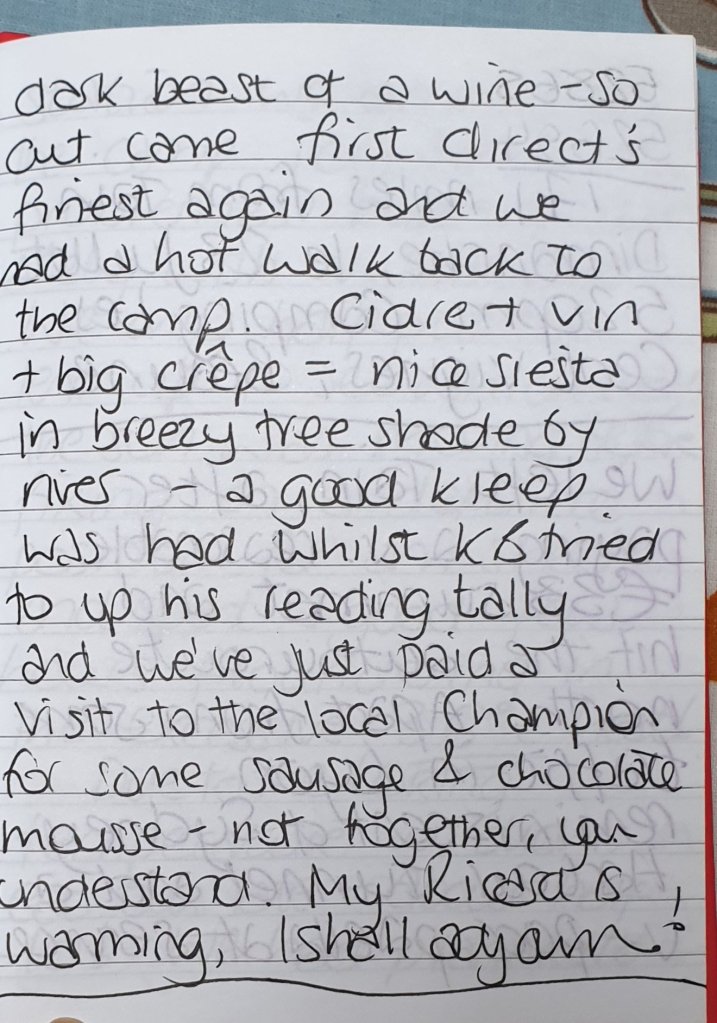 dark beast of a wine - so
out came first direct's
finest again and we
had a hot walk back to
the camp. Cidre + vin
+ big crêpe = nice siesta
in breezy tree shade by
river - a good kleep
was had whilst KB tried
to up his reading tally
and we've just paid a
visit to the local Champion
for some sausage & chocolate
mousse - not together, you
understand. My Ricard is
warming, I shall